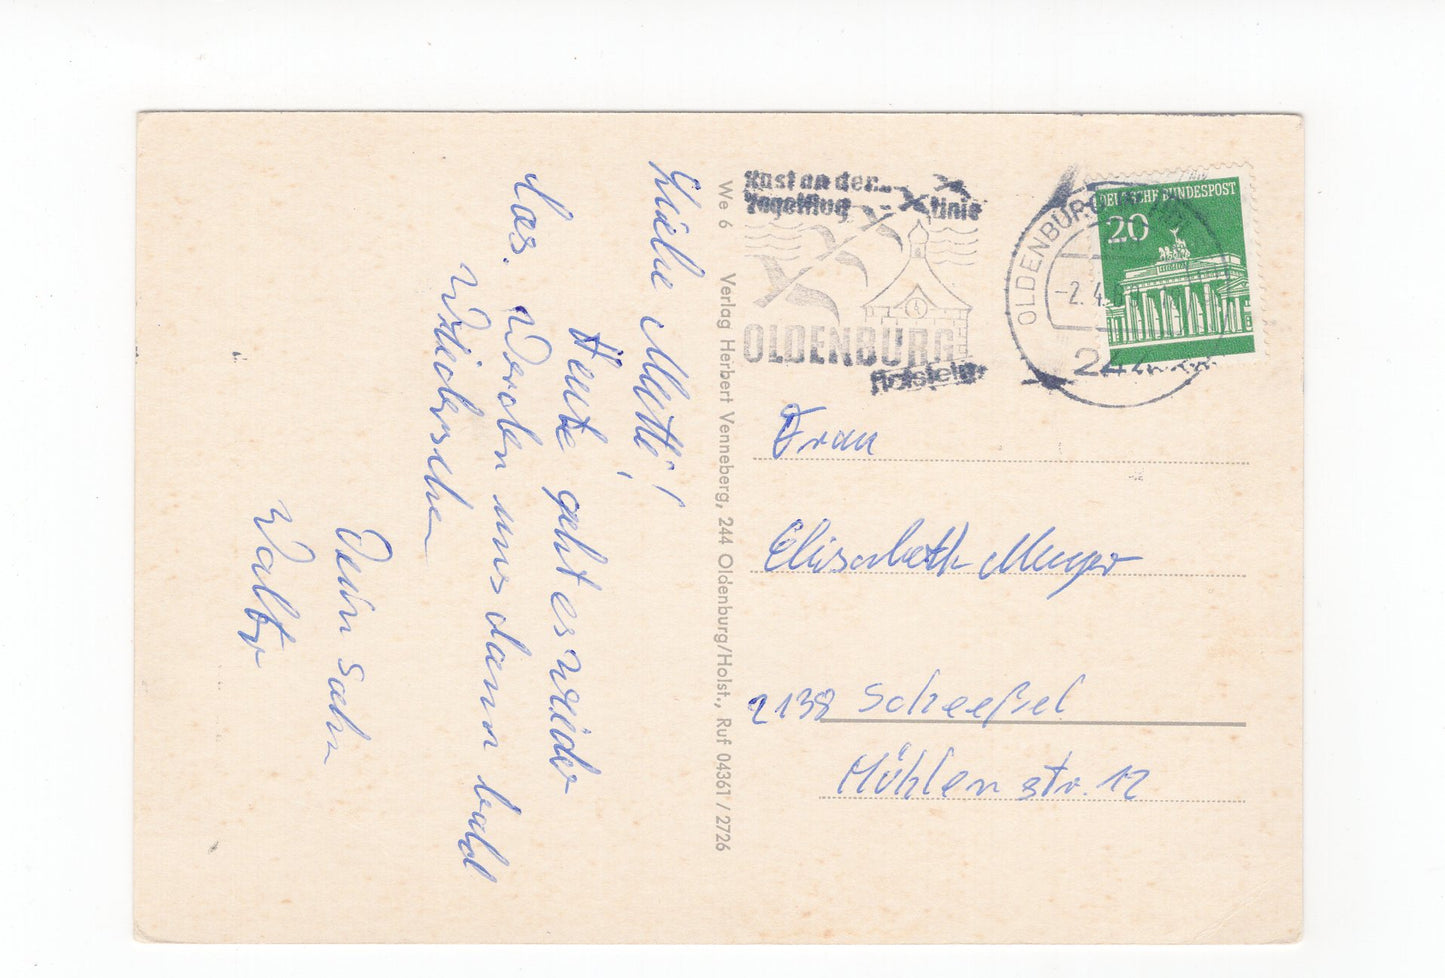 Liebe Mutti!
Heute geht es wieder
los. Werden uns dann bald
Wiedersehen
Dein Sohn
Walter
We 6 Verlag Herbert Venneberg, 244 Oldenburg/Holst., Ruf 04361 / 2726
Rast an der
Vogelflug Linie
OLDENBURG
Holstein
OLDENBURG
-2. 4.
244
DEUTSCHE BUNDESPOST
20
Frau
Elisabeth Meyer
2138 Scheeßel
Mühlenstr. 12